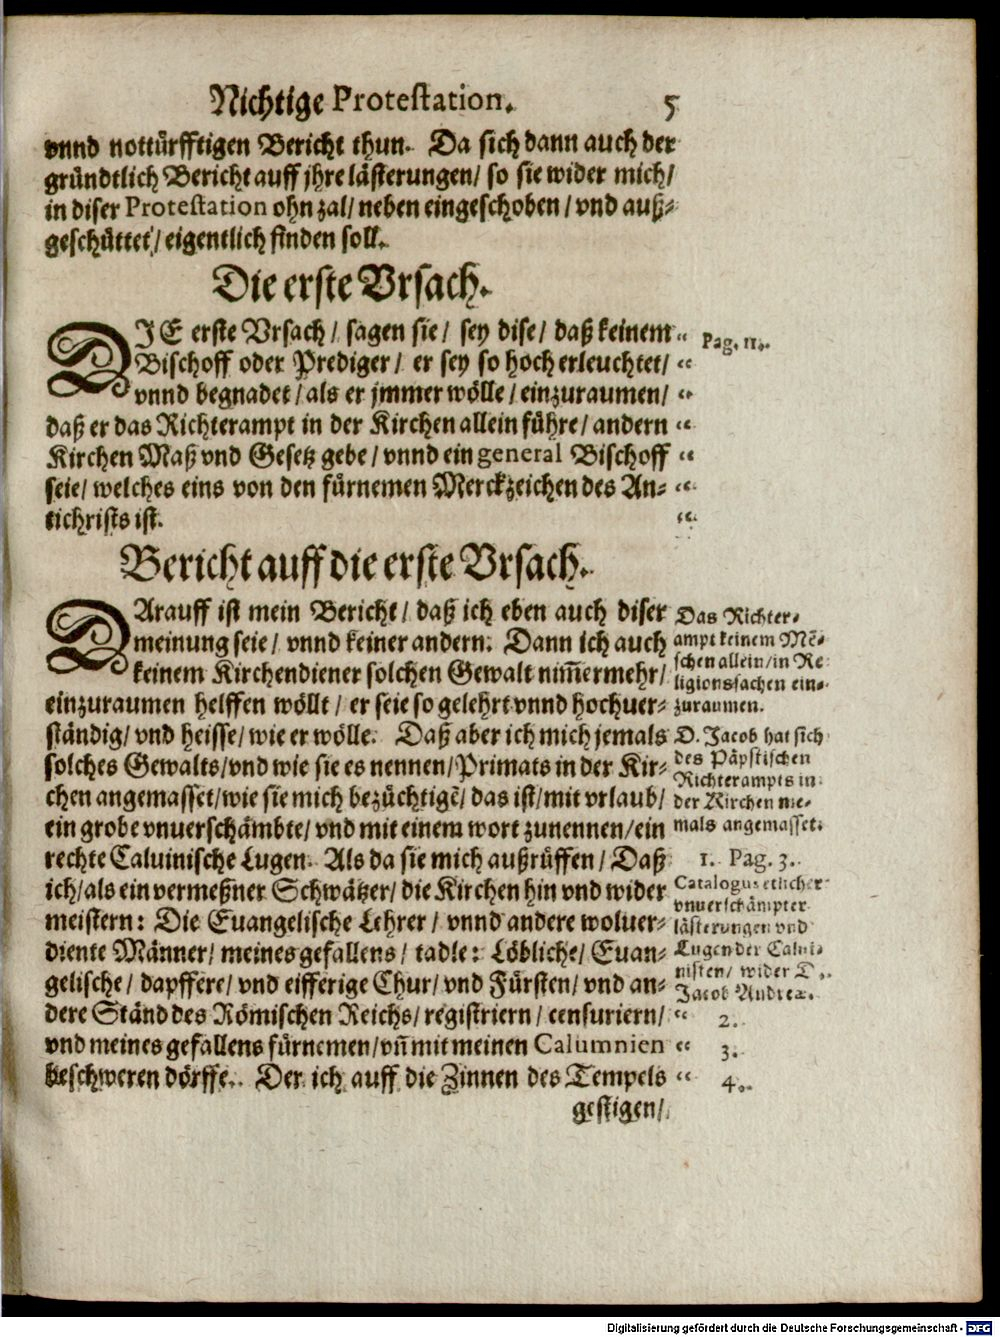 Nichtige Protestation. 5
vnnd nottürfftigen Bericht thun. Da sich dann auch der
gründtlich Bericht auff jhre lästerungen/ so sie wider mich/
in diser Protestation ohn zal/ neben eingeschoben/ vnd auß-
geschüttet/ eigentlich finden soll.
Die erste Vrsach.
DIE erste Vrsach/ sagen sie/ sey dise/ daß keinem
Bischoff oder Prediger/ er sey so hoch erleuchtet/
vnnd begnadet/ als er jmmer wölle/ einzuraumen/
daß er das Richterampt in der Kirchen allein führe/ andern
Kirchen Maß vnd Gesetz gebe/ vnnd ein general Bischoff
seie/ welches eins von den fürnemen Merckzeichen des An-
tichrists ist.
Pag. 11.
Bericht auff die erste Vrsach.
DArauff ist mein Bericht/ daß ich eben auch diser
meinung seie/ vnnd keiner andern: Dann ich auch
keinem Kirchendiener solchen Gewalt nim̃ermehr/
einzuraumen helffen wöllt/ er seie so gelehrt vnnd hochuer-
ständig/ vnd heisse/ wie er wölle. Daß aber ich mich jemals
solches Gewalts/ vnd wie sie es nennen/ Primats in der Kir-
chen angemasset/ wie sie mich bezüchtigẽ/ das ist/ mit vrlaub/
ein grobe vnuerschämbte/ vnd mit einem wort zunennen/ ein
rechte Caluinische Lugen. Als da sie mich außrüffen/ Daß
ich/ als ein vermeßner Schwätzer/ die Kirchen hin vnd wider
meistern: Die Euangelische Lehrer/ vnnd andere woluer-
diente Männer/ meines gefallens/ tadle: Löbliche/ Euan-
gelische/ dapffere/ vnd eifferige Chur/ vnd Fürsten/ vnd an-
dere Ständ des Römischen Reichs/ registriern/ censuriern/
vnd meines gefallens fürnemen/ vñ mit meinen Calumnien
beschweren dörffe. Der ich auff die Zinnen des Tempels
gestigen/
Das Richter-
ampt keinem Mẽ-
schen allein/ in Re-
ligionssachen ein-
zuraumen.
D. Jacob hat sich
des Päpstischen
Richterampts in
der Kirchen nie-
mals angemasset.
1. Pag. 3.
Catalogus etlicher
vnuerschämpter
lästerungen vnd
Lugen der Calui-
nisten/ wider D.
Jacob Andrea.
2.
3.
4.
Digitalisierung gefördert durch die Deutsche Forschungsgemeinschaft - DFG